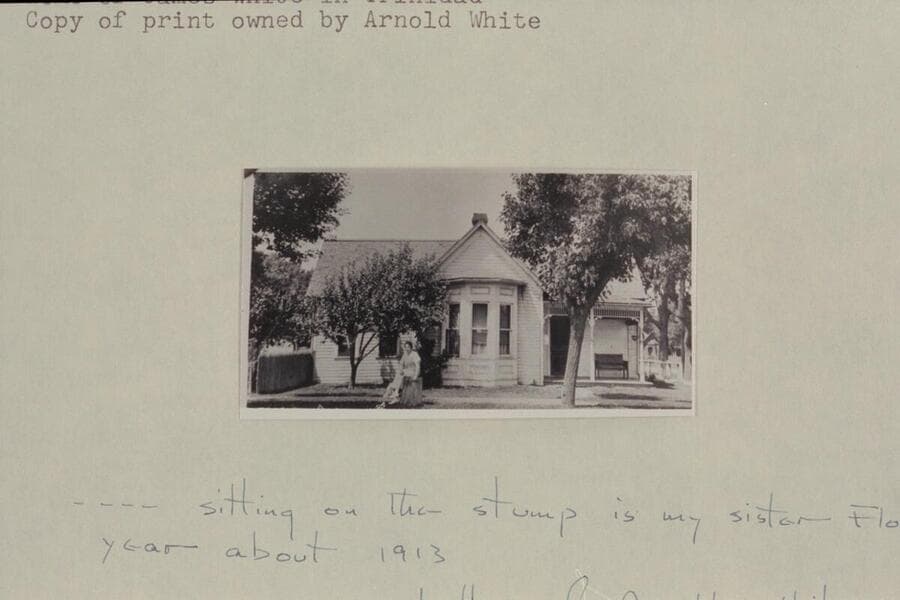 James White in Trinidad
Copy of print owned by Arnold White
---- sitting on the stump is my sister Flo
year about 1913